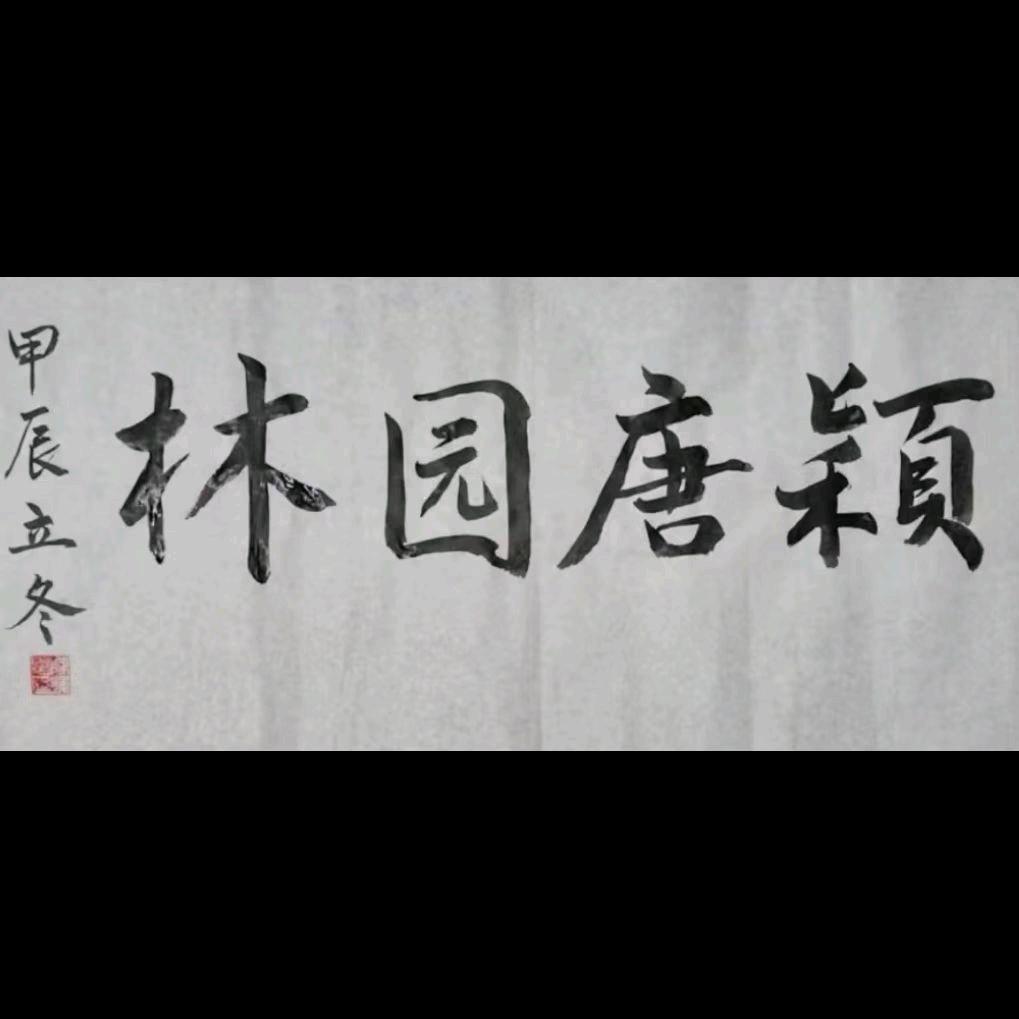 穎唐园林
甲辰立冬